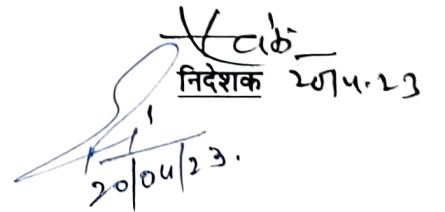 निदेशक 20/4.23
20/04/23.